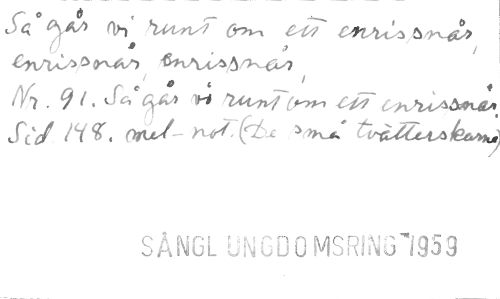 Så går vi runt om ett enrissnår,
enrissnår, enrissnår,
Nr. 91. Så går vi runt om ett enrissnår.
Sid 148. mel-not. (De små tvätterskorna)
SÅNGL UNGDOMSRING -1959